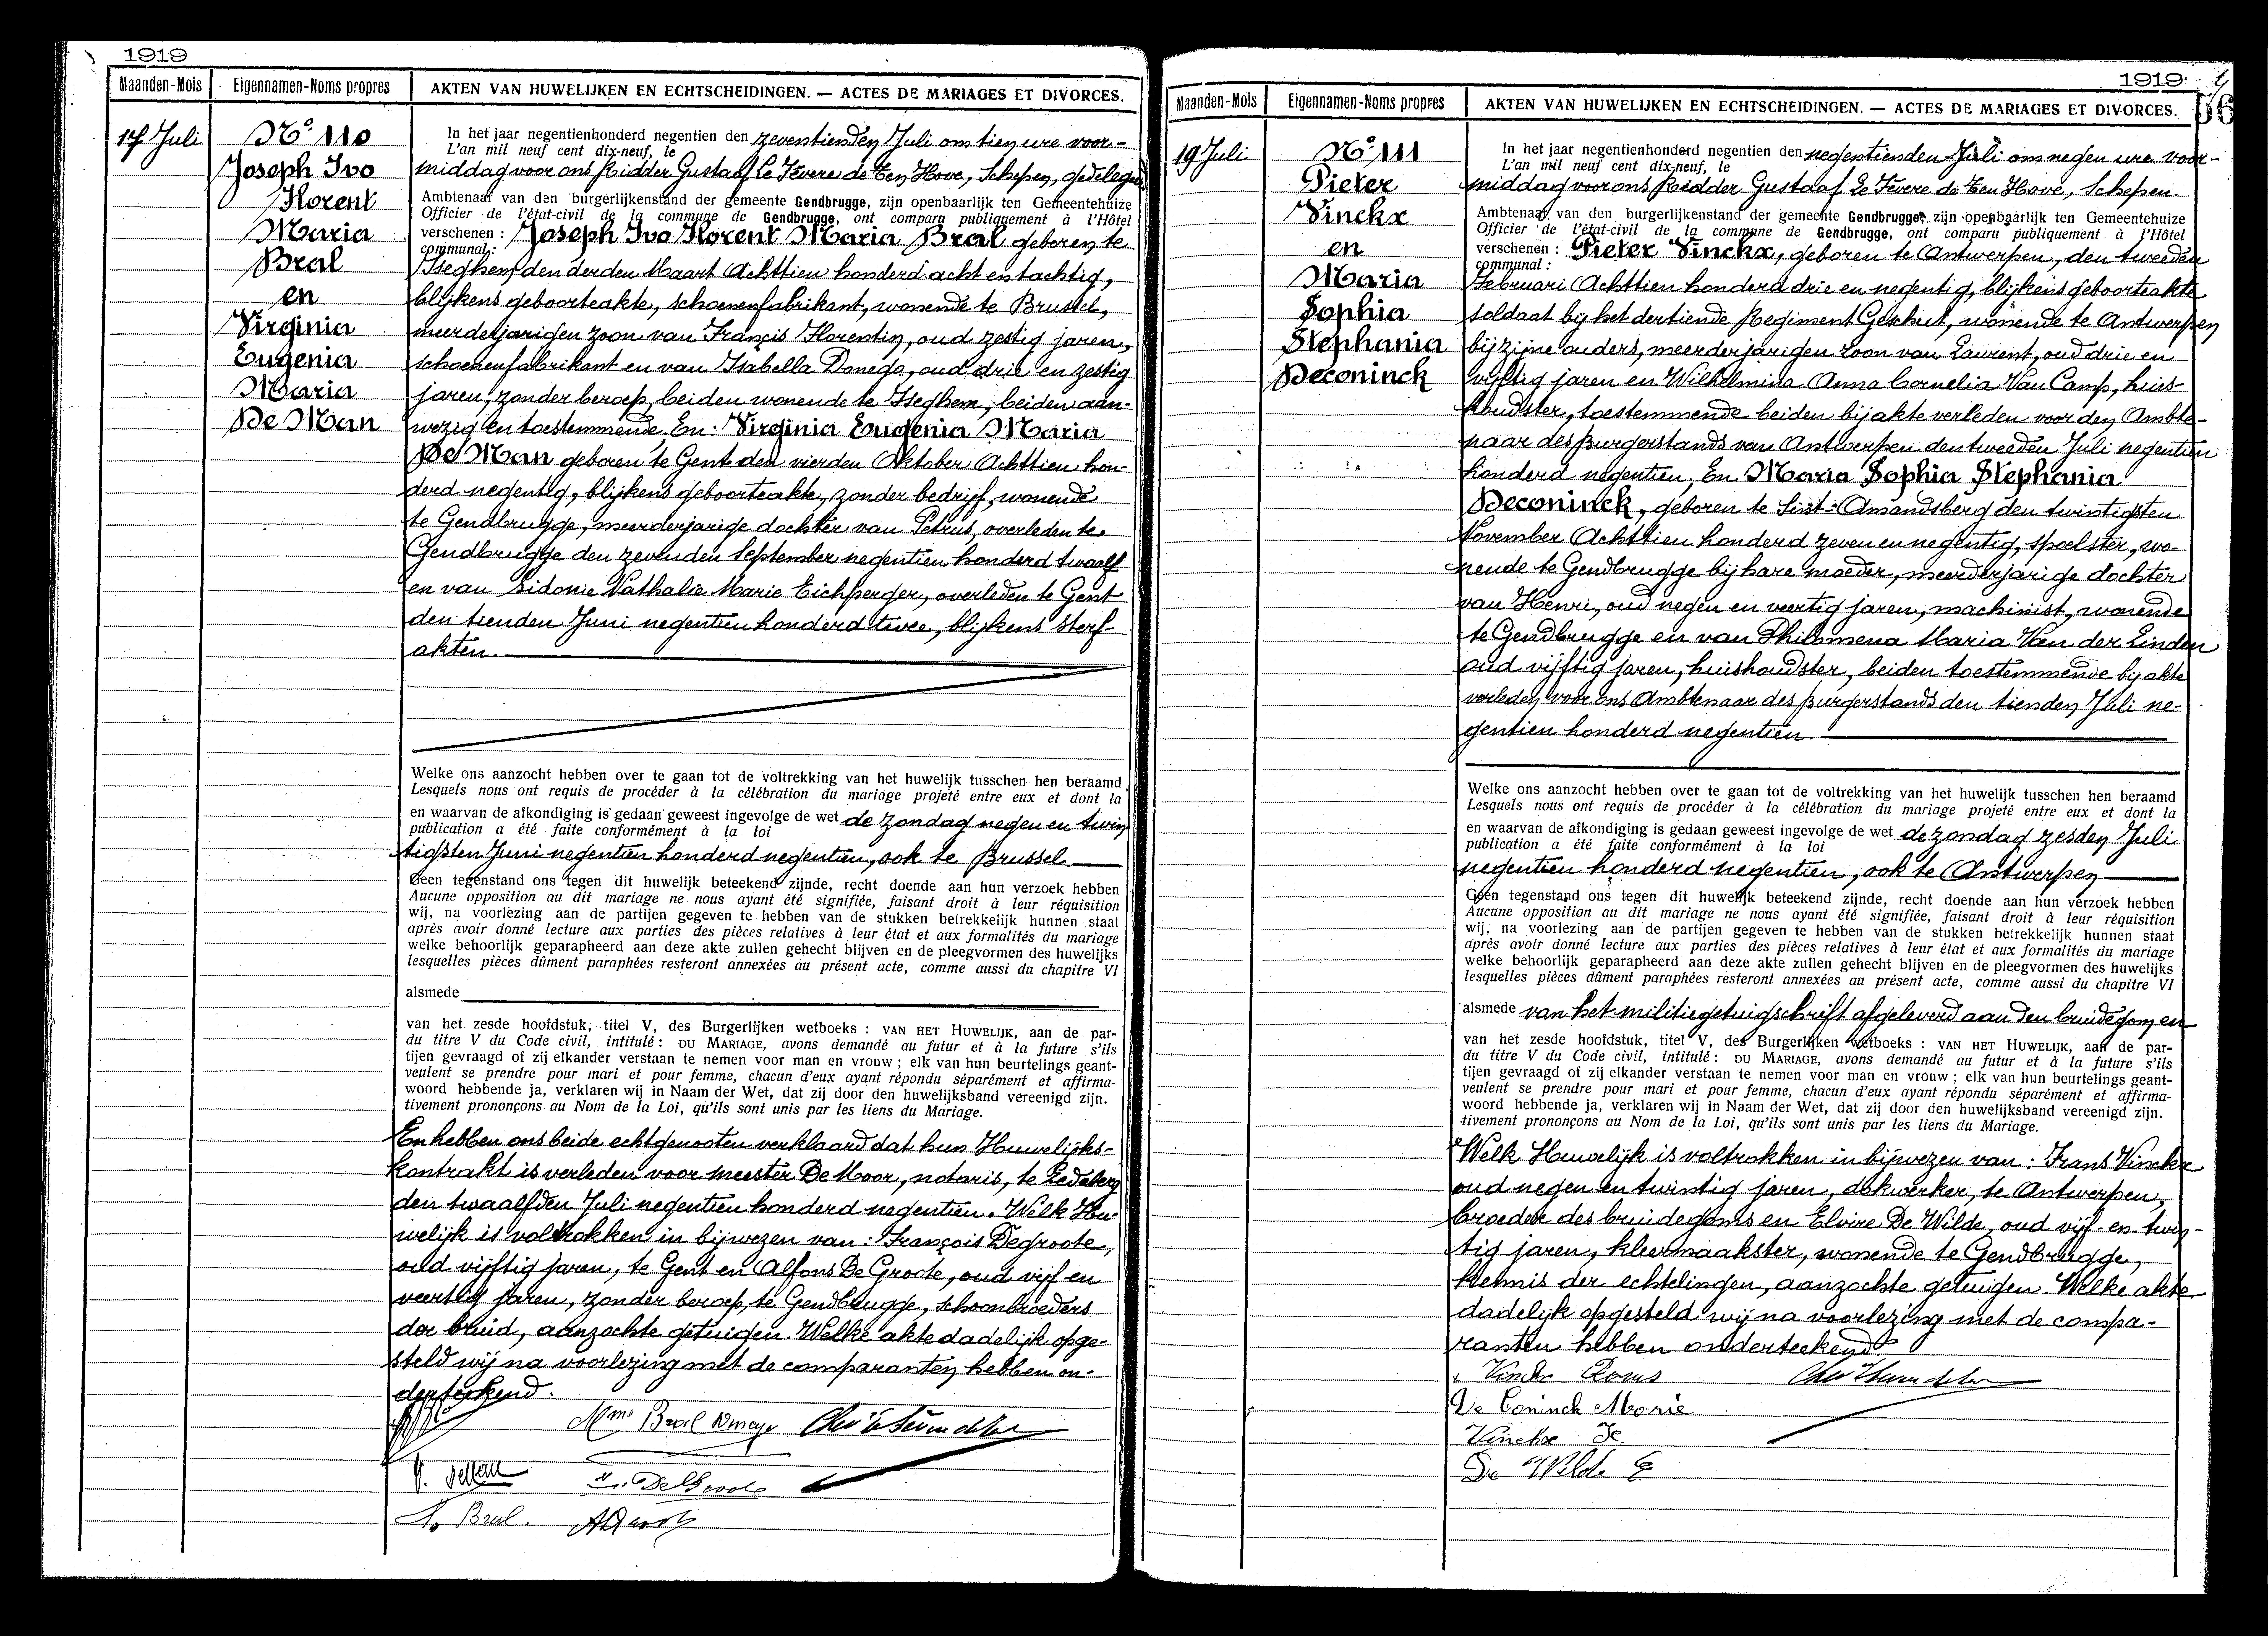 1919
Maanden-Mois
Eigennamen-Noms propres
AKTEN VAN HUWELIJKEN EN ECHTSCHEIDINGEN. — ACTES DE MARIAGES ET DIVORCES.
17 Juli
N° 110
Joseph Ivo
Florent
Maria
Bral
en
Virginia
Eugenia
Maria
De Man
In het jaar negentienhonderd negentien den zeventienden Juli om tien ure voor-
L'an mil neuf cent dix-neuf, le
middag voor ons Ridder Gustaaf Le Fevere de Ten Hove, Schepen, gedelegeerd
Ambtenaar van den burgerlijkenstand der gemeente Gendbrugge, zijn openbaarlijk ten Gemeentehuize
Officier de l'état-civil de la commune de Gendbrugge, ont comparu publiquement à l'Hôtel
verschenen : Joseph Ivo Florent Maria Bral geboren te
communal :
Iseghem den derden Maart Achttien honderd acht en tachtig,
blijkens geboorteakte, schoenenfabrikant, wonende te Brussel,
meerderjarigen zoon van François Florentin, oud zestig jaren,
schoenenfabrikant en van Isabella Donega, oud drie en zestig
jaren, zonder beroep, beiden wonende te Iseghem, beiden aan-
wezig en toestemmende. En : Virginia Eugenia Maria
De Man geboren te Gent den vierden Oktober Achttien hon-
derd negentig, blijkens geboorteakte, zonder bedrijf, wonende
te Gendbrugge, meerderjarige dochter van Petrus, overleden te
Gendbrugge den zevenden September negentien honderd twaalf
en van Sidonie Nathalie Marie Eichperger, overleden te Gent
den tienden Juni negentien honderd twee, blijkens sterf-
akten.
Welke ons aanzocht hebben over te gaan tot de voltrekking van het huwelijk tusschen hen beraamd
Lesquels nous ont requis de procéder à la célébration du mariage projeté entre eux et dont la
en waarvan de afkondiging is gedaan geweest ingevolge de wet de zondag negen en twin
publication a été faite conformément à la loi
tigsten Juni negentien honderd negentien, ook te Brussel.
Geen tegenstand ons tegen dit huwelijk beteekend zijnde, recht doende aan hun verzoek hebben
Aucune opposition au dit mariage ne nous ayant été signifiée, faisant droit à leur réquisition
wij, na voorlezing aan de partijen gegeven te hebben van de stukken betrekkelijk hunnen staat
après avoir donné lecture aux parties des pièces relatives à leur état et aux formalités du mariage
welke behoorlijk geparapheerd aan deze akte zullen gehecht blijven en de pleegvormen des huwelijks
lesquelles pièces dûment paraphées resteront annexées au présent acte, comme aussi du chapitre VI
alsmede
van het zesde hoofdstuk, titel V, des Burgerlijken wetboeks : VAN HET HUWELIJK, aan de par-
du titre V du Code civil, intitulé : DU MARIAGE, avons demandé au futur et à la future s'ils
tijen gevraagd of zij elkander verstaan te nemen voor man en vrouw ; elk van hun beurtelings geant-
veulent se prendre pour mari et pour femme, chacun d'eux ayant répondu séparément et affirma-
woord hebbende ja, verklaren wij in Naam der Wet, dat zij door den huwelijksband vereenigd zijn.
tivement prononçons au Nom de la Loi, qu'ils sont unis par les liens du Mariage.
En hebben ons beide echtgenooten verklaard dat hun Huwelijks-
kontrakt is verleden voor meester De Moor, notaris, te Ledeberg
den twaalfden Juli negentien honderd negentien. Welk Hu-
welijk is voltrokken in bijwezen van : François Degroote,
oud vijftig jaren, te Gent en Alfons De Groote, oud vijf en
veertig jaren, zonder beroep, te Gendbrugge, schoonbroeders
der bruid, aanzochte getuigen. Welke akte dadelijk opge-
steld wij na voorlezing met de comparanten hebben on-
derteekend.
Mme Bral
Bral
1919
56
Maanden-Mois
Eigennamen-Noms propres
AKTEN VAN HUWELIJKEN EN ECHTSCHEIDINGEN. — ACTES DE MARIAGES ET DIVORCES.
19 Juli
N° 111
Pieter
Vinckx
en
Maria
Sophia
Stephania
Deconinck
In het jaar negentienhonderd negentien den negentienden Juli om negen ure voor-
L'an mil neuf cent dix-neuf, le
middag voor ons Ridder Gustaaf Le Fevere de Ten Hove, Schepen.
Ambtenaar van den burgerlijkenstand der gemeente Gendbrugge, zijn openbaarlijk ten Gemeentehuize
Officier de l'état-civil de la commune de Gendbrugge, ont comparu publiquement à l'Hôtel
verschenen : Pieter Vinckx, geboren te Antwerpen, den tweeden
communal :
Februari Achttien honderd drie en negentig, blijkens geboorteakte
soldaat bij het dertiende Regiment Geschut, wonende te Antwerpen
bij zijne ouders, meerderjarigen zoon van Laurent, oud drie en
vijftig jaren en Wilhelmina Anna Cornelia Van Camp, huis-
houdster, toestemmende beiden bij akte verleden voor den Ambte-
naar des Burgerstands van Antwerpen den tweeden Juli negentien
honderd negentien, En Maria Sophia Stephania
Deconinck, geboren te Sint-Amandsberg den twintigsten
November Achttien honderd zeven en negentig, spoelster, wo-
nende te Gendbrugge bij hare moeder, meerderjarige dochter
van Henri, oud negen en veertig jaren, machinist, wonende
te Gendbrugge en van Philomena Maria Van der Linden
oud vijftig jaren, huishoudster, beiden toestemmende bij akte
verleden voor ons Ambtenaar des Burgerstands den tienden Juli ne-
gentien honderd negentien.
Welke ons aanzocht hebben over te gaan tot de voltrekking van het huwelijk tusschen hen beraamd
Lesquels nous ont requis de procéder à la célébration du mariage projeté entre eux et dont la
en waarvan de afkondiging is gedaan geweest ingevolge de wet de zondag zesden Juli
publication a été faite conformément à la loi
negentien honderd negentien, ook te Antwerpen
Geen tegenstand ons tegen dit huwelijk beteekend zijnde, recht doende aan hun verzoek hebben
Aucune opposition au dit mariage ne nous ayant été signifiée, faisant droit à leur réquisition
wij, na voorlezing aan de partijen gegeven te hebben van de stukken betrekkelijk hunnen staat
après avoir donné lecture aux parties des pièces relatives à leur état et aux formalités du mariage
welke behoorlijk geparapheerd aan deze akte zullen gehecht blijven en de pleegvormen des huwelijks
lesquelles pièces dûment paraphées resteront annexées au présent acte, comme aussi du chapitre VI
alsmede van het militiegetuigschrift afgeleverd aan den bruidegom en
van het zesde hoofdstuk, titel V, des Burgerlijken wetboeks : VAN HET HUWELIJK, aan de par-
du titre V du Code civil, intitulé : DU MARIAGE, avons demandé au futur et à la future s'ils
tijen gevraagd of zij elkander verstaan te nemen voor man en vrouw ; elk van hun beurtelings geant-
veulent se prendre pour mari et pour femme, chacun d'eux ayant répondu séparément et affirma-
woord hebbende ja, verklaren wij in Naam der Wet, dat zij door den huwelijksband vereenigd zijn.
tivement prononçons au Nom de la Loi, qu'ils sont unis par les liens du Mariage.
Welk Huwelijk is voltrokken in bijwezen van : Frans Vinckx
oud negen en twintig jaren, dokwerker, te Antwerpen,
broeder des bruidegoms en Elvire De Wilde, oud vijf en twin-
tig jaren, kleermaakster, wonende te Gendbrugge,
kennis der echtelingen, aanzochte getuigen. Welke akte
dadelijk opgesteld wij na voorlezing met de compa-
ranten hebben onderteekend.
Vinckx
De Coninck Marie
Vinckx
De Wilde E